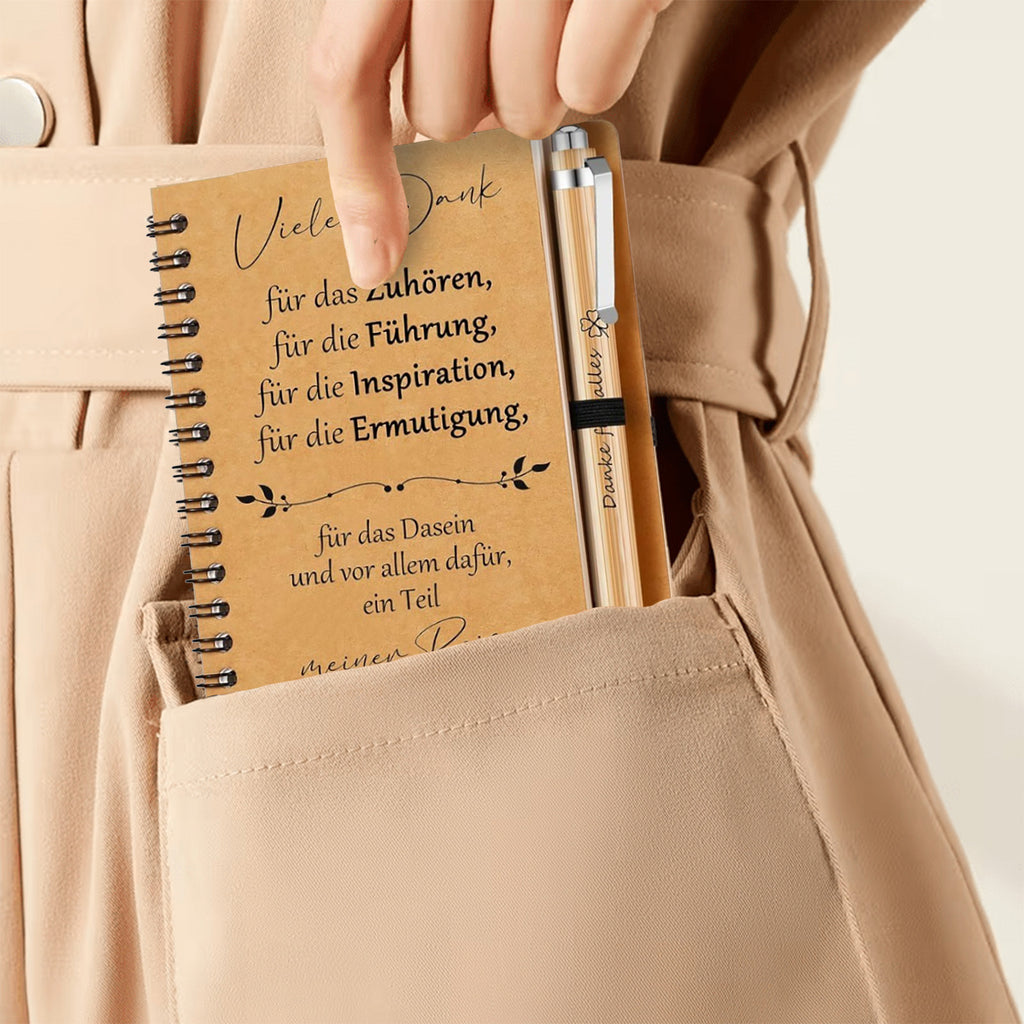 Vielen Dank
für das Zuhören,
für die Führung,
für die Inspiration,
für die Ermutigung,
für das Dasein
und vor allem dafür,
ein Teil
meiner
Danke alles